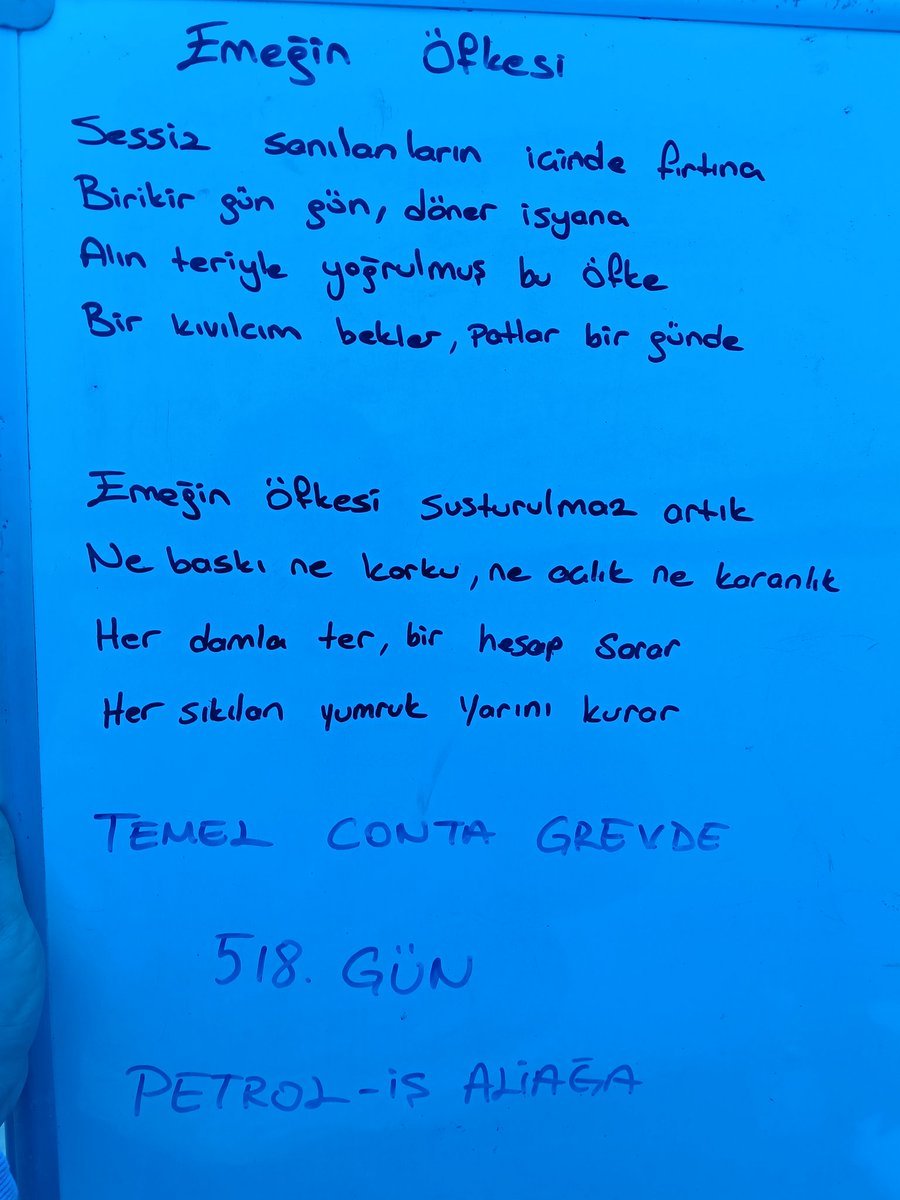 Emeğin Öfkesi
Sessiz sanılanların icinde fırtına
Birikir gün gün, döner isyana
Alın teriyle yoğrulmuş bu öfke
Bir kıvılcım bekler, patlar bir günde
Emeğin Öfkesi susturulmaz artık
Ne baskı ne korku, ne aclık ne karanlık
Her damla ter, bir hesap sorar
Her sıkılan yumruk yarını kurar
TEMEL CONTA GREVDE
518. GÜN
PETROL-İŞ ALİAĞA